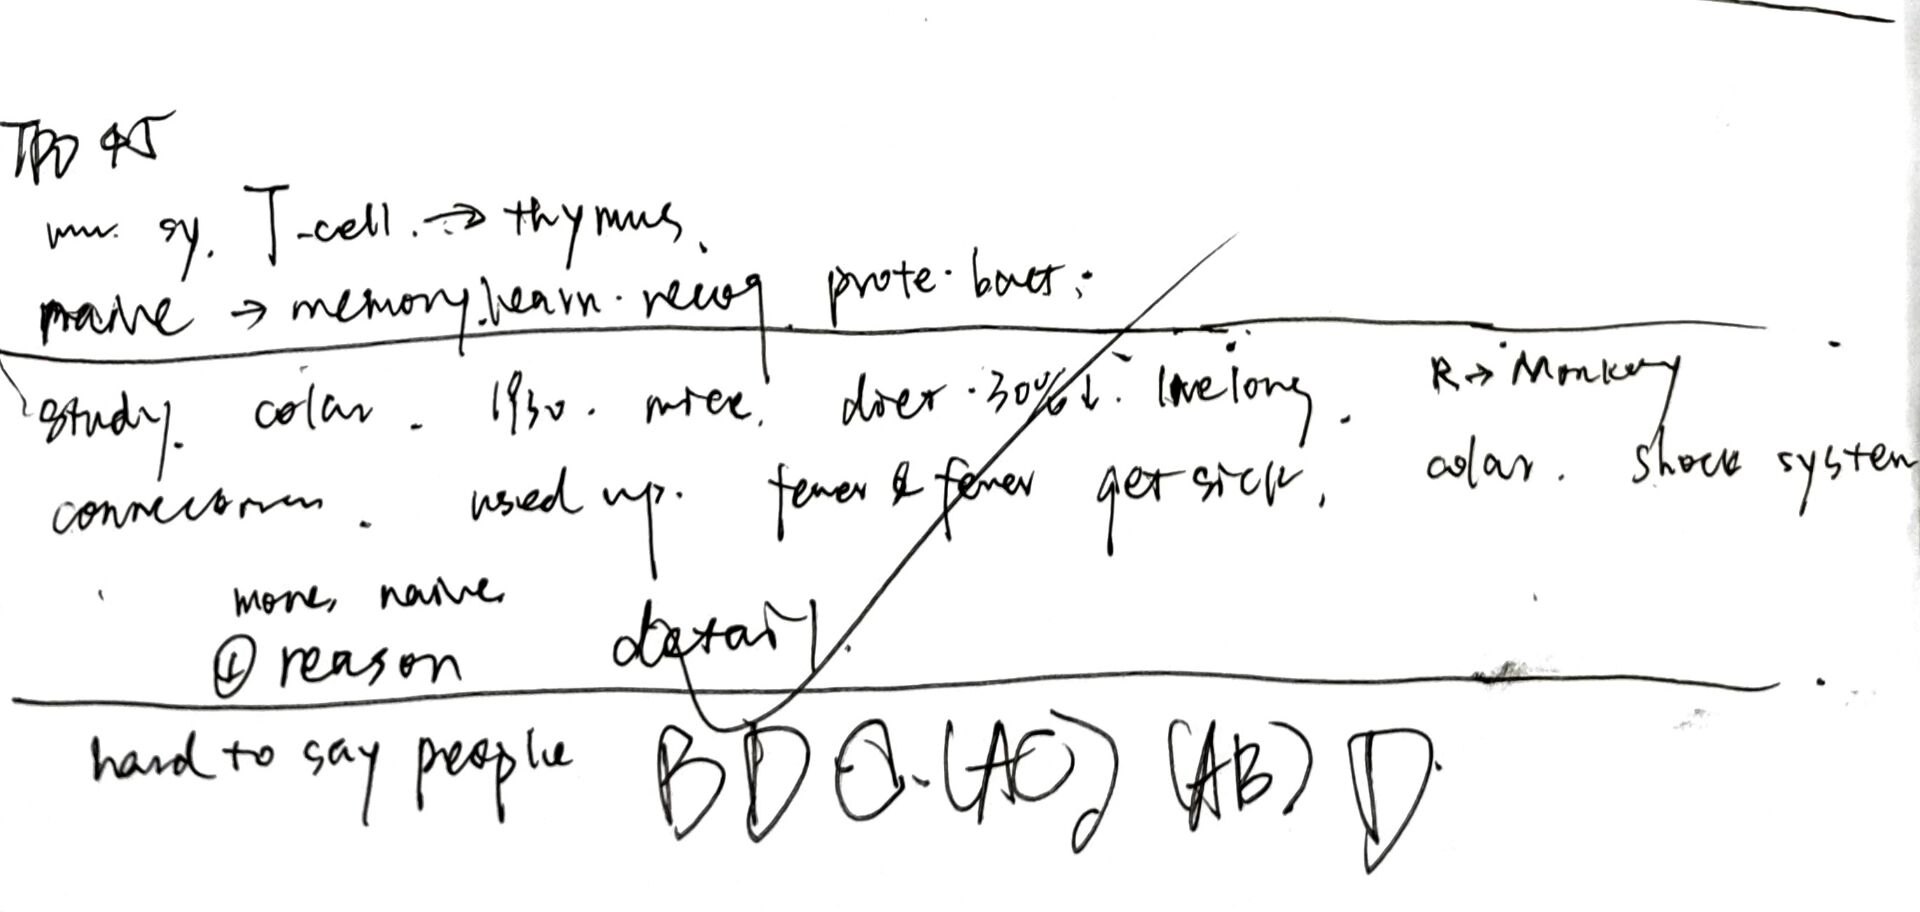 TPO 45
imm. sy. T-cell. → thymus.
naive → memory. learn. recog. prote. bact.
study. calor. 1930. mice. diet. 30% ↓. live long. R → Monkey
connection. used up. fewer & fewer get sick. calor. shock system
more, naive.
① reason detail.
hard to say people B D (AC) (AB) D.